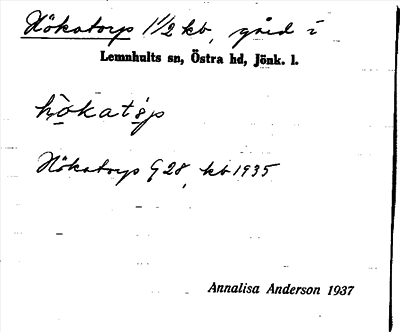 Hökatorp 1 1/2 kb, gård i
Lemnhults sn, Östra hd, Jönk. l.
hökatǫp
Hökatorp G 28, kb 1935
Annalisa Anderson 1937